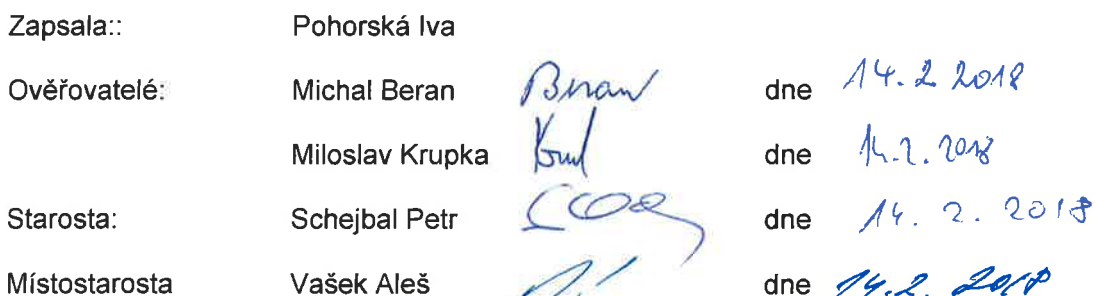 Zapsala:: Pohorská Iva
Ověřovatelé: Michal Beran Beran dne 14. 2 2018
Miloslav Krupka dne 14. 2. 2018
Starosta: Schejbal Petr dne 14. 2. 2018
Místostarosta Vašek Aleš dne 14.2. 2018